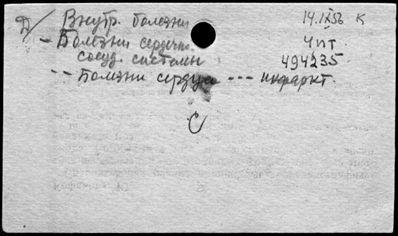 Д/ Внутр. болезни 14.IX56 К
- Болезни сердечн. Чит
сосуд. системы 494235
-- Болезни сердца --- инфаркт.
С